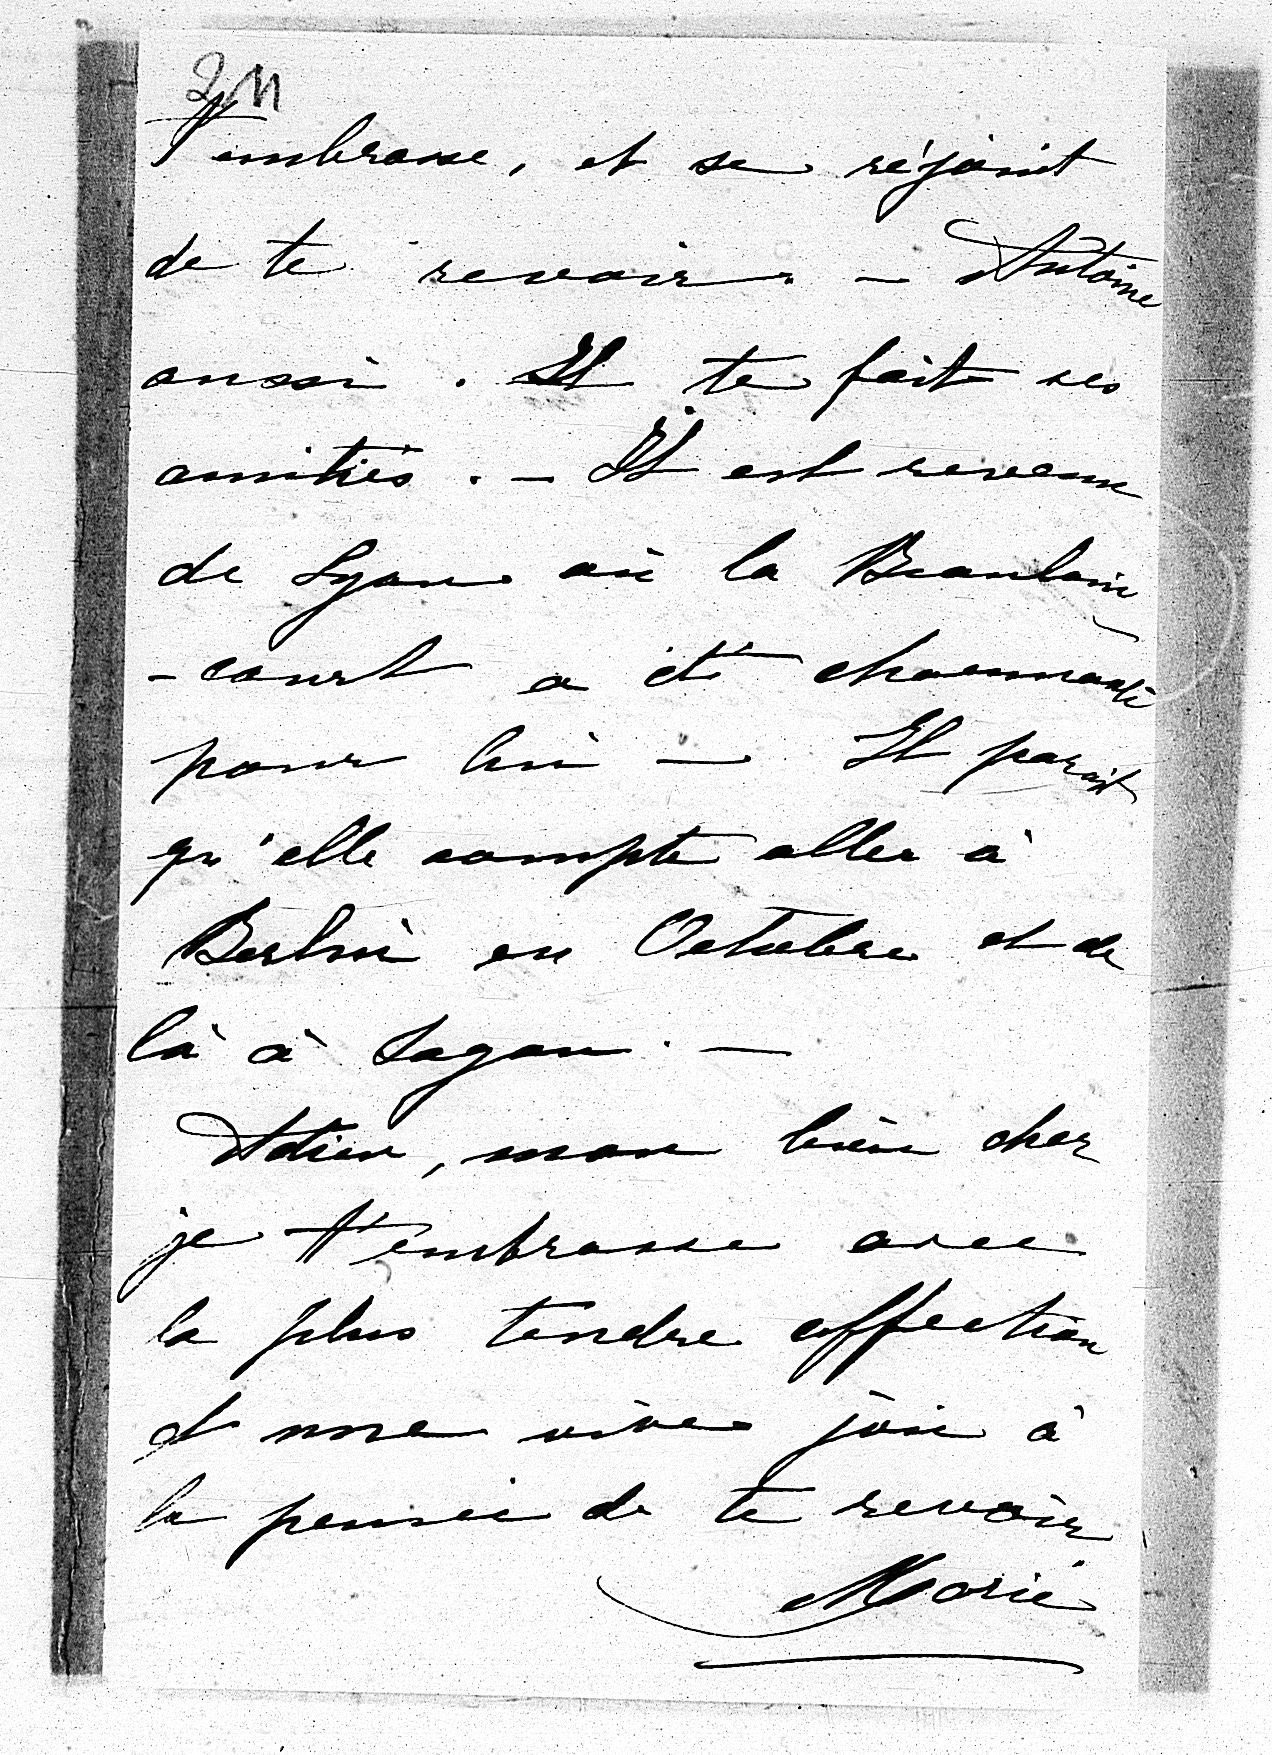 211
t'embrasse, et se réjouit
de te revoir. – Antoine
aussi. Il te fait ses
amitiés. – Il est revenu
de Lyon où la Beaulain
-court a été charmante
pour lui – Il parait
qu'elle compte aller à
Berlin en Octobre et de
là à Sagan. –
Adieu, mon bien cher
je t'embrasse avec
la plus tendre affection
et une vive joie à
la pensée de te revoir
Marie